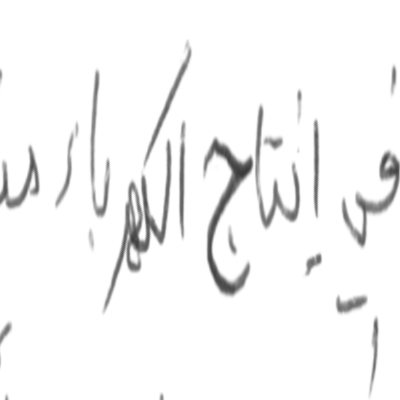 في إنتاج الكهرباء من